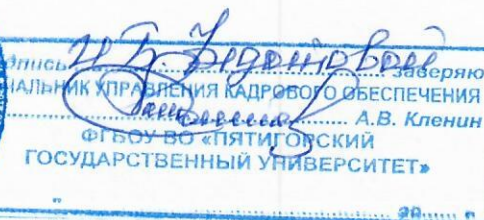 И.Б. Федотовой
дпись ............ заверяю
ЧАЛЬНИК УПРАВЛЕНИЯ КАДРОВОГО ОБЕСПЕЧЕНИЯ
............ А.В. Кленин
ФГБОУ ВО «ПЯТИГОРСКИЙ
ГОСУДАРСТВЕННЫЙ УНИВЕРСИТЕТ»
" 20...... г